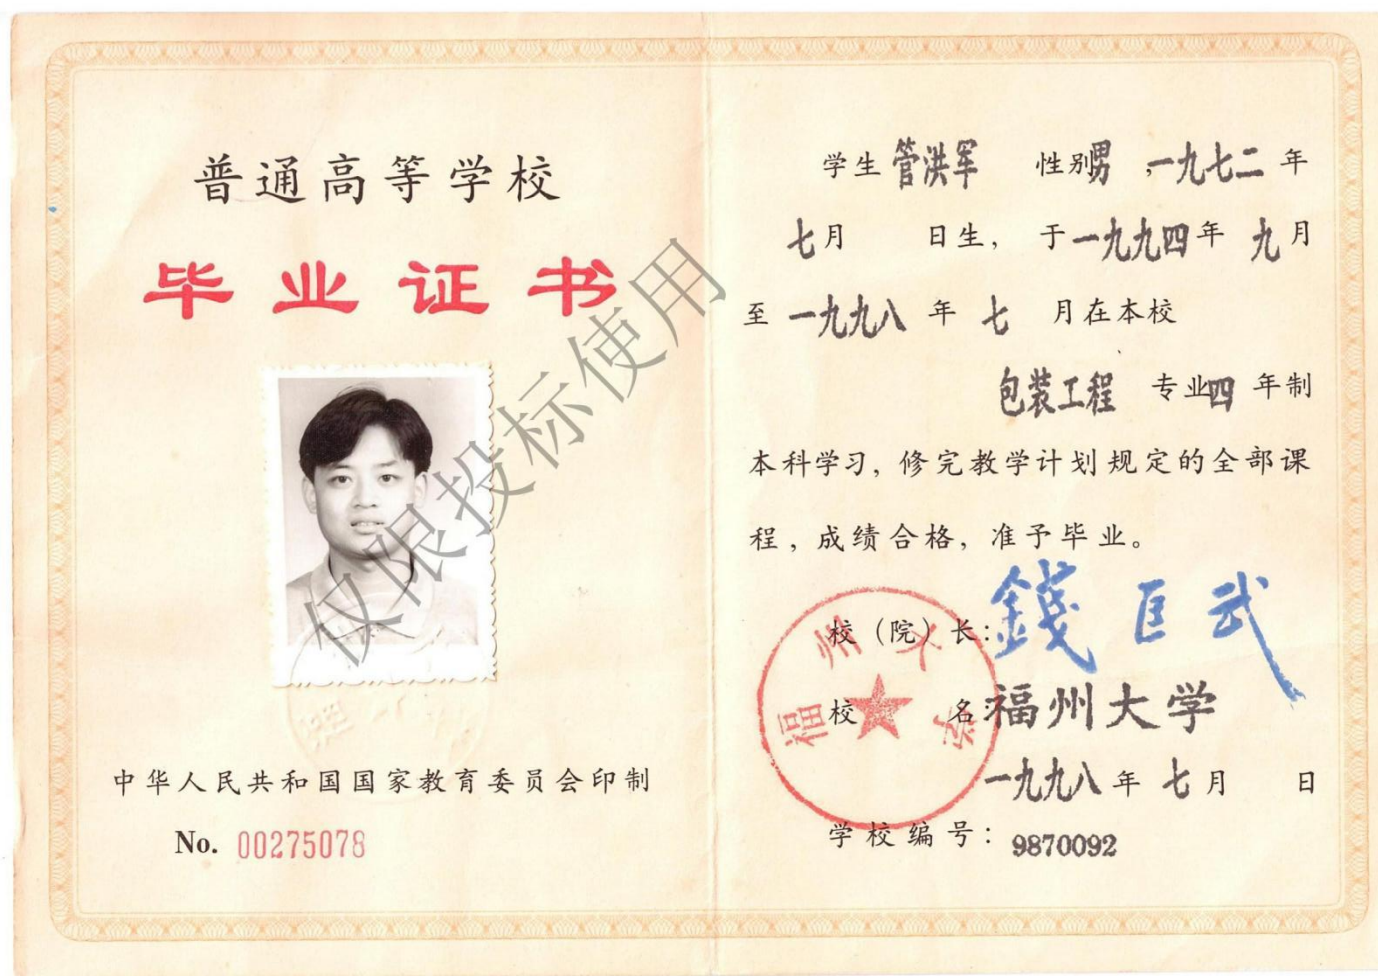 普通高等学校
毕业证书
中华人民共和国国家教育委员会印制
No. 00275078
学生管洪军 性别男，一九七二年
七月 日生，于一九九四年 九月
至一九九八年七 月在本校
包装工程 专业四年制
本科学习，修完教学计划规定的全部课
程，成绩合格，准予毕业。
校（院）长：錢匡武
校 名：福州大学
一九九八年七月 日
学校编号：9870092
福州大学
仅限投标使用